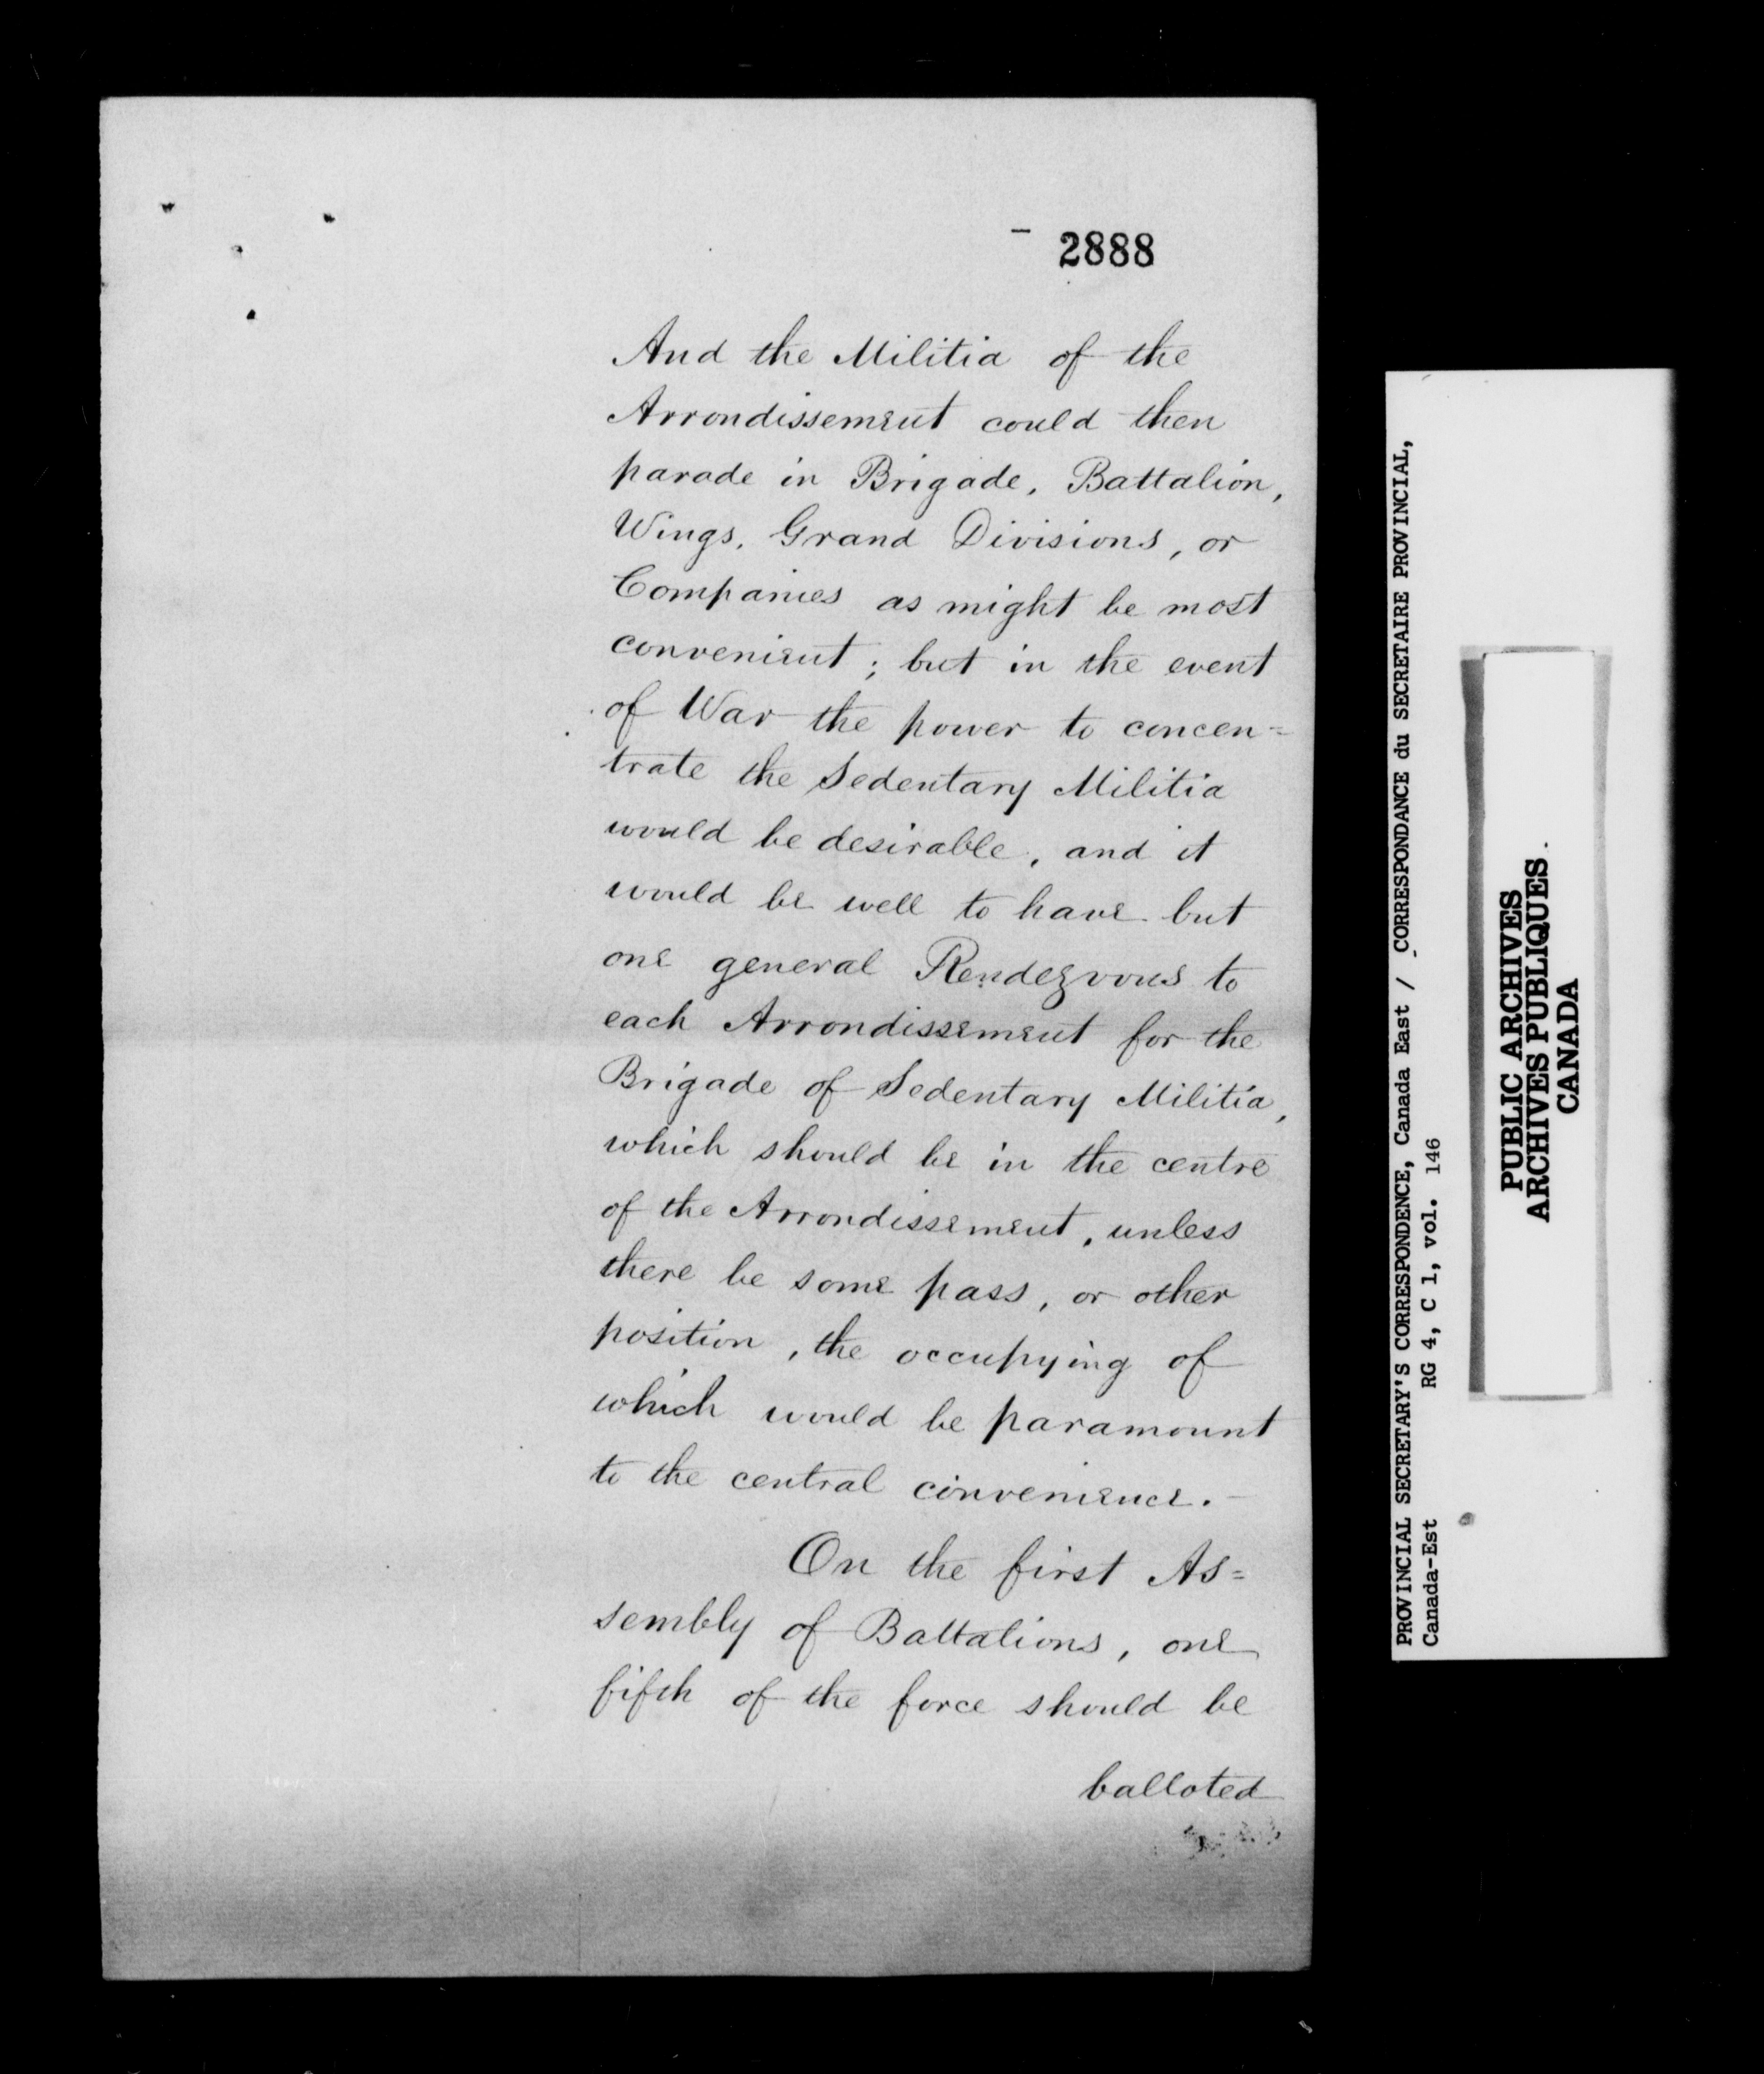 2888
And the Militia of the
Arrondissement could then
parade in Brigade, Battalion,
Wings, Grand Divisions, or
Companies as might be most
convenient; but in the event
of War the power to concen=
trate the Sedentary Militia
would be desirable, and it
would be well to have but
one general Rendezvous to
each Arrondissement for the
Brigade of Sedentary Militia,
which should be in the centre
of the Arrondissement, unless
there be some pass, or other
position, the occupying of
which would be paramount
to the central convenience. —
On the first As=
sembly of Battalions, one
fifth of the force should be
balloted
PROVINCIAL SECRETARY'S CORRESPONDENCE, Canada East / CORRESPONDANCE du SECRETAIRE PROVINCIAL,
Canada-Est RG 4, C 1, vol. 146
PUBLIC ARCHIVES
ARCHIVES PUBLIQUES
CANADA